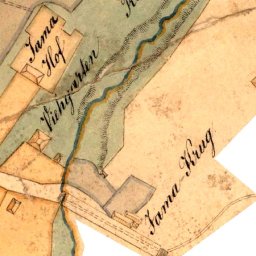 Jama
Hof
Viehgarten
Jama Krug